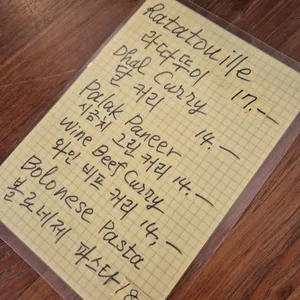 Ratatouille
라따뚜이 17.—
Dhal Curry
달 커리
Palak Paneer 14.—
시금치 그린커리 14.—
Wine Beef Curry
와인 비프 커리 14,—
Bolonese Pasta
볼로네제 파스타 18